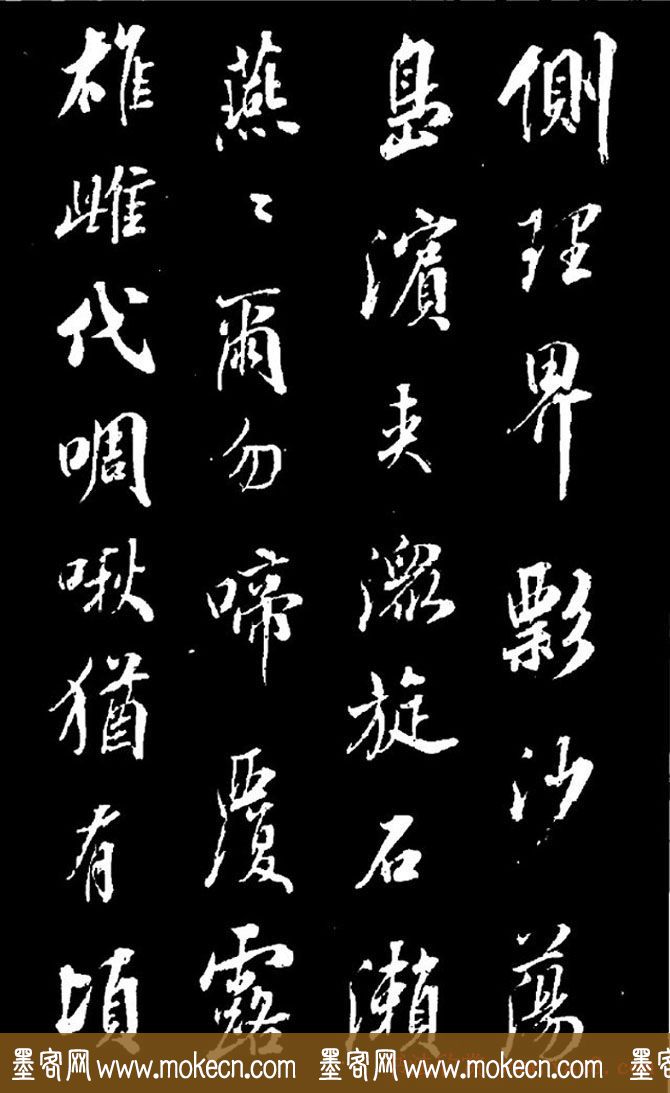 側理界彯沙蕩
島濱夾潨旋石瀨
燕〻爾勿啼覆露
雄雌代啁啾猶有頃
墨客网 www.mokecn.com 墨客网 www.mokecn.com 墨客